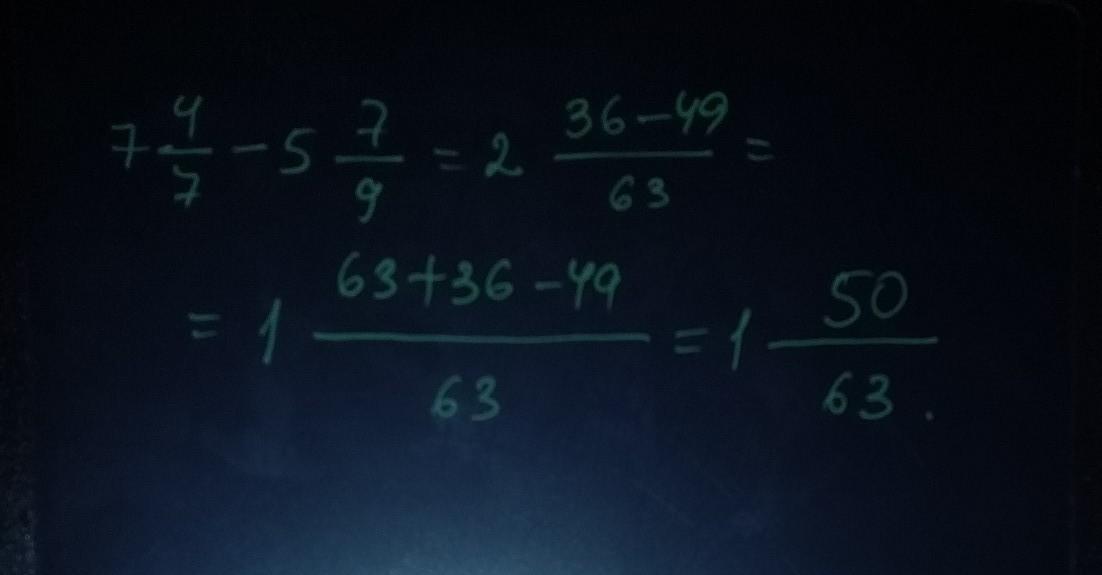 7 4/7 - 5 7/9 = 2 (36-49)/63 =
= 1 (63+36-49)/63 = 1 50/63.